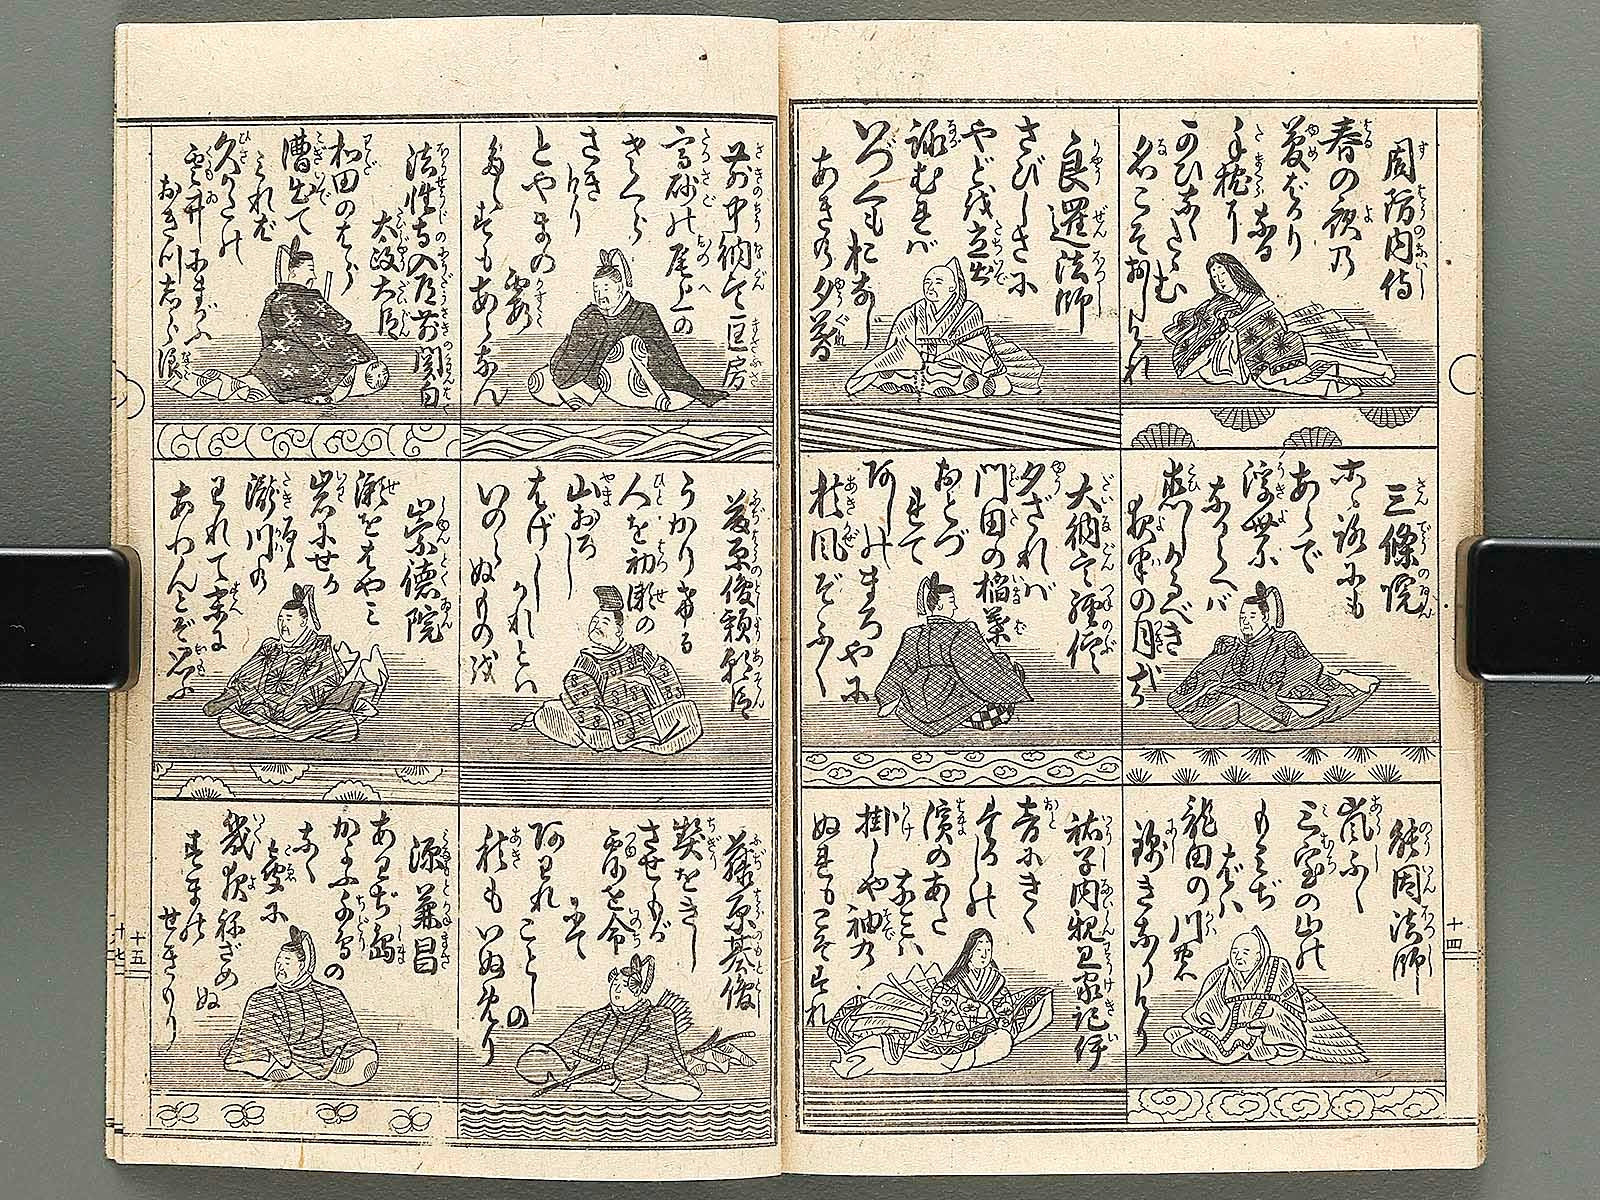 周防内侍
春の夜の
夢ばかり
なる
手枕に
かひなくたゝむ
名こそおしけれ
三條院
こゝろにも
あらで
浮世に
ながらへば
恋しかるべき
夜半の月哉
能因法師
嵐ふく
三室の山の
もみぢ
ばは
龍田の川の
錦きなりけり
良暹法師
さびしさに
やどを立出
詠むれば
いづくもおなじ
あきの夕暮
大納言経信
夕ざれば
門田の稲葉
おとづ
れて
あしのまろやに
秋風ぞふく
祐子内親王家紀伊
音にきく
たかしの
濱のあだ
なみは
掛しや袖の
ぬれもこそすれ
十四
前中納言匡房
高砂の尾上の
さくら
さき
けり
とやまの
霞
たゝずもあらなん
藤原俊頼朝臣
うかりける
人を初瀬の
山おろし
はげしかれとは
いのらぬものを
藤原基俊
契をきし
させもが
露を命
にて
あはれ
ことしの
秋もいぬめり
法性寺入道前関白
太政大臣
和田のはら
漕出て
みれば
久かたの
雲井にまがふ
おきつしら浪
崇徳院
瀬をはやみ
岩にせか
るゝ
瀧川の
われて末に
あわんとぞ思ふ
源兼昌
あはぢ嶋
かよふ千鳥の
なく
こゑに
幾夜ねざめぬ
すまの
せきもり
十五
十七